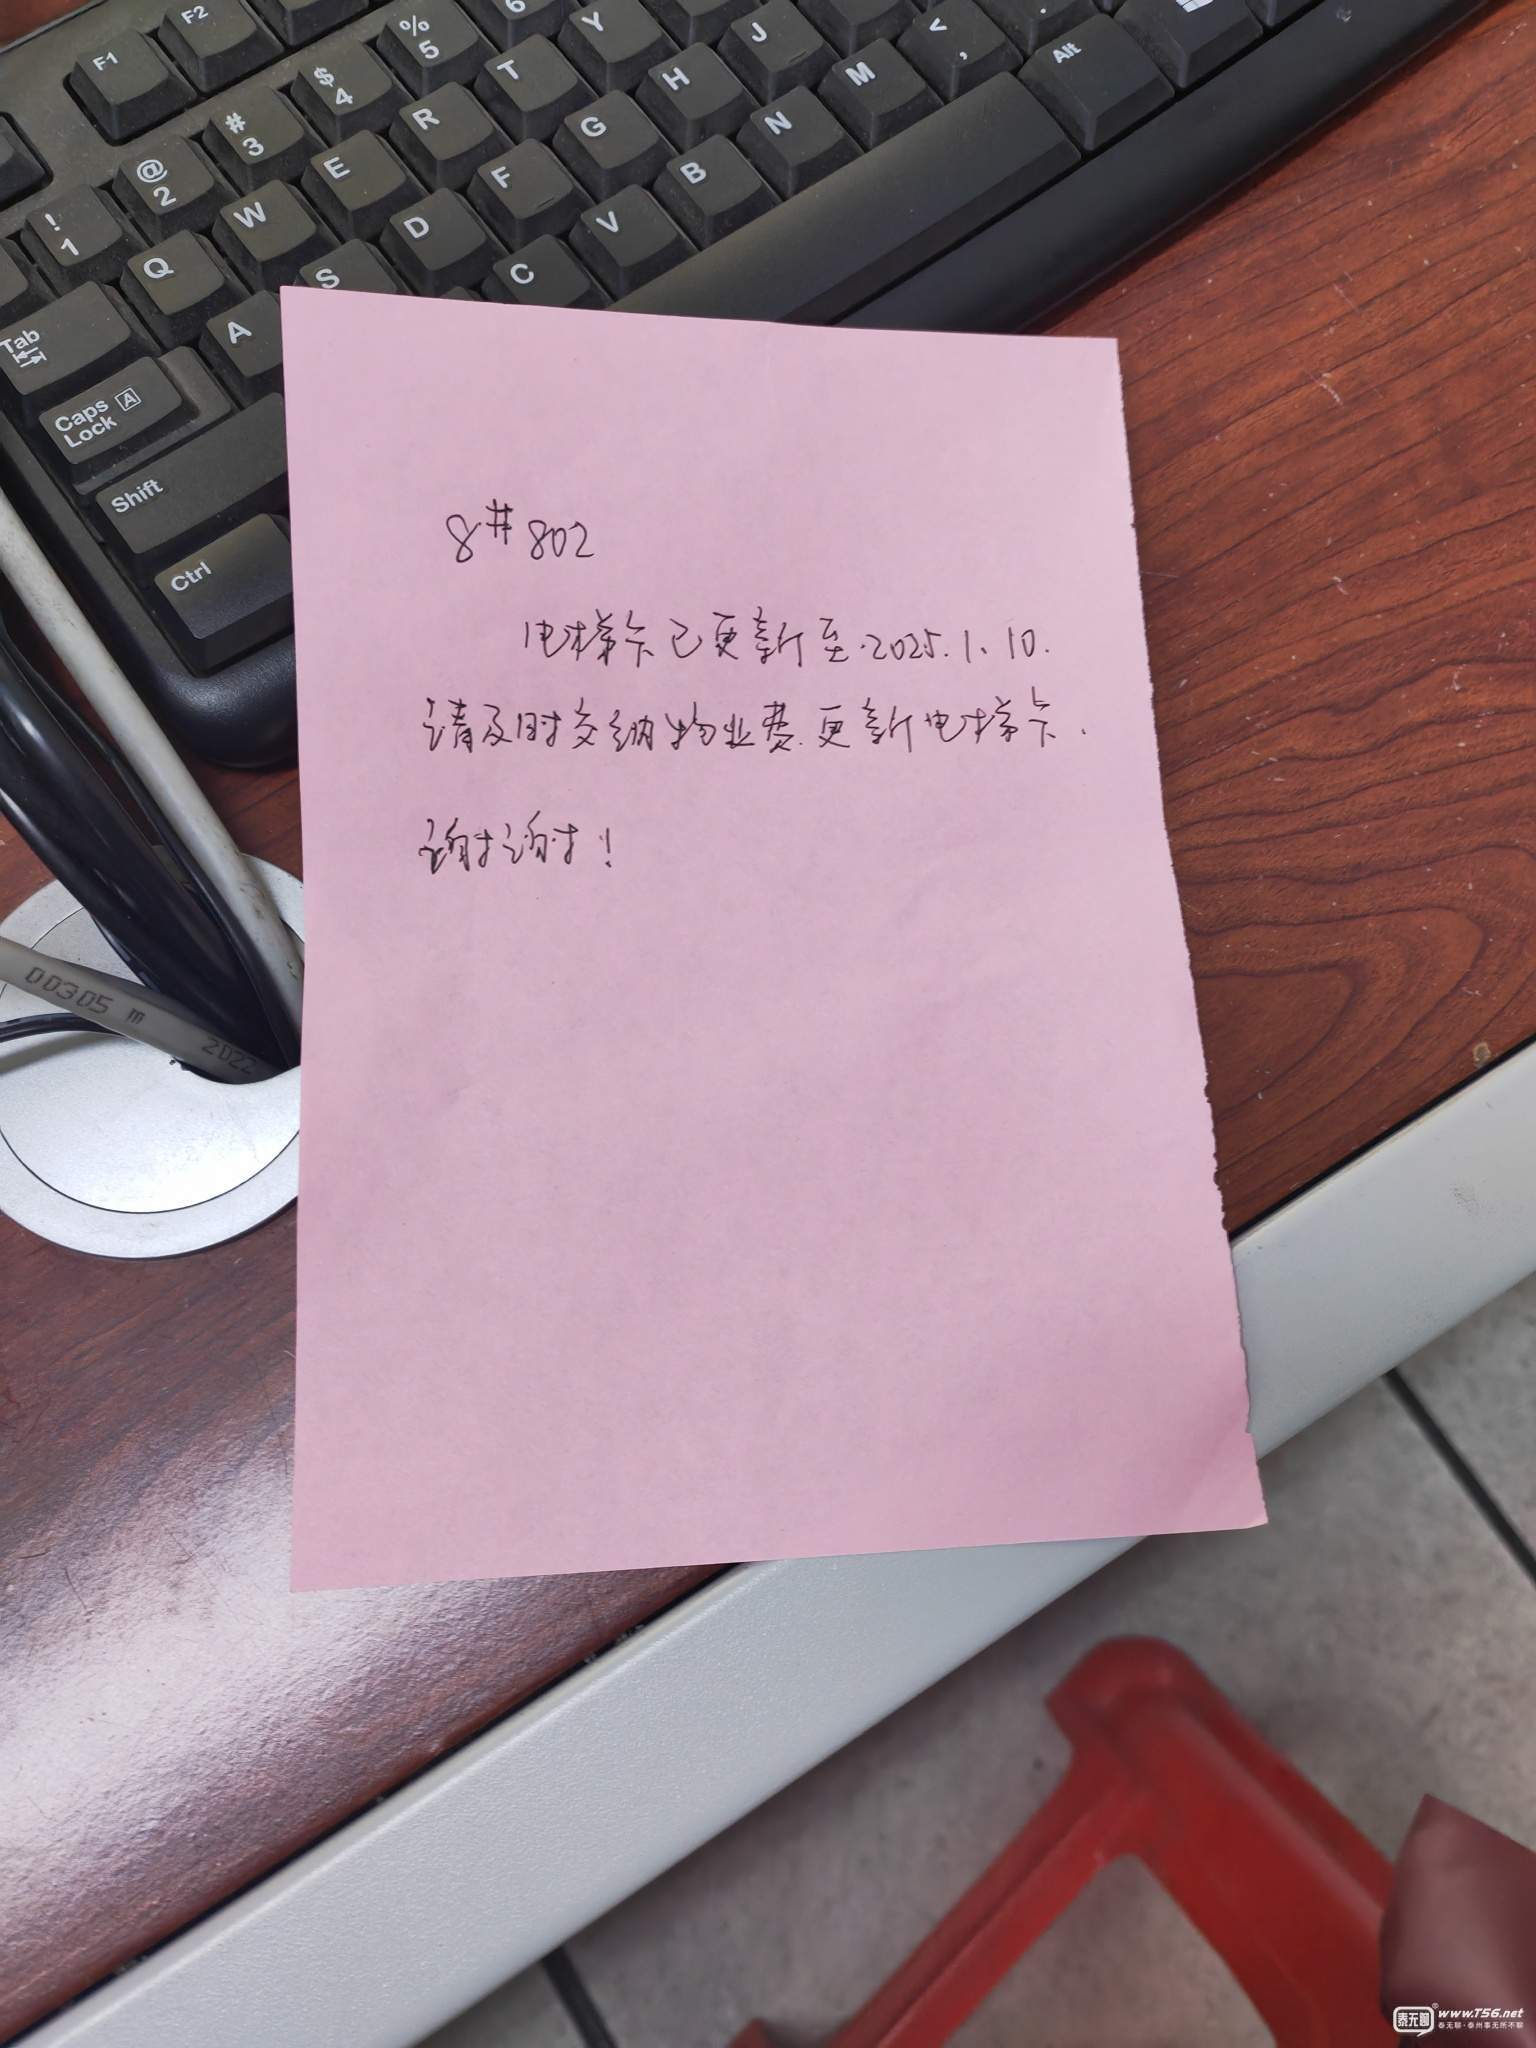 F1
F2
% 5
6
Y
J
< ,
Alt
$ 4
T
H
M
# 3
R
G
N
@ 2
E
F
B
! 1
W
D
V
Q
S
C
Tab
A
Caps Lock A
Shift
Ctrl
8# 802
电梯卡已更新至.2025.1.10.
请及时交纳物业费.更新电梯卡.
谢谢!
00305 m 2022
泰无聊® www.T56.net
泰无聊·泰州事无所不聊